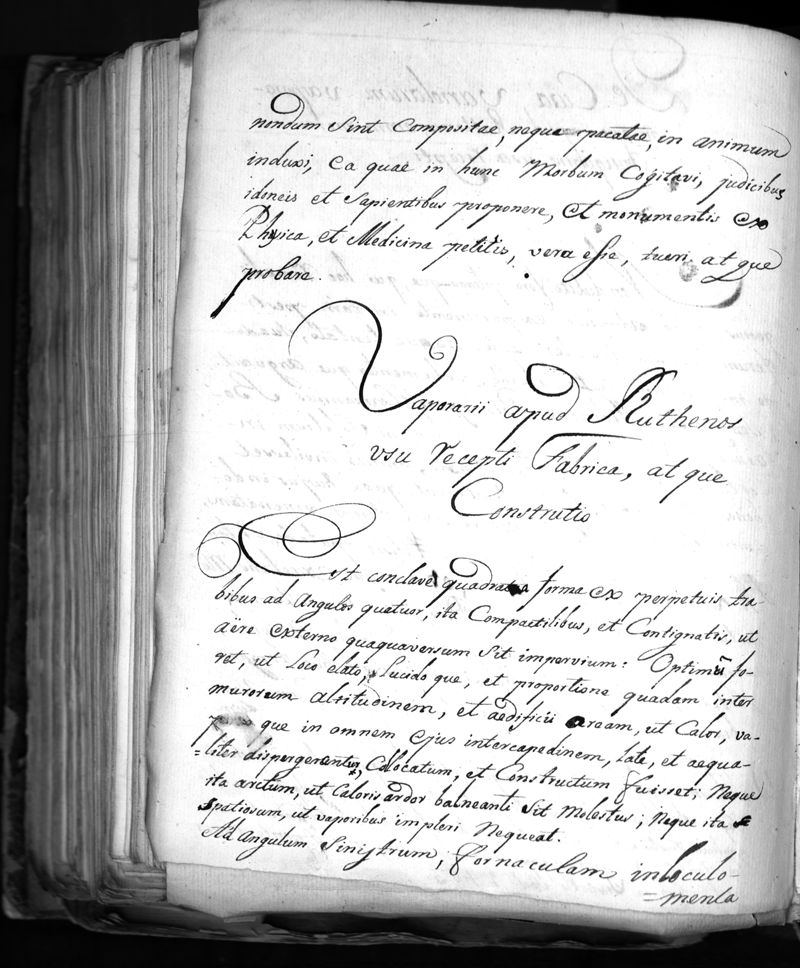 nondum sint Compositae, neque pacatae, in animum
induxi, ea quae in hunc Morbum Cogitavi, judicibus
idoneis et sapientibus proponere, et monumentis ex
Physica, et Medicina petitis, vera esse, tueri atque
probare.
Vaporarii apud Ruthenos
usu recepti Fabrica, atque
Construtio
Est conclave quadrata forma ex perpetuis tra-
bibus ad Angulos quatuor, ita Compactilibus, et Contignatis, ut
aëre externo quaquaversum sit impervium: Optimū fo-
ret, ut Loco elato, Lucidoque, et proportione quadam inter
murorum altitudinem, et aedificii aream, ut Calor, va-
que in omnem ejus intercapedinem, late, et aequa-
=liter dispergerentur, Collocatum, et Constructum fuisset; Neque
ita arctum, ut Caloris ardor balneanti sit Molestus; Neque ita
spatiosum, ut vaporibus impleri Nequeat.
Ad Angulum Sinistrum, fornaculam in loculo-
=menta